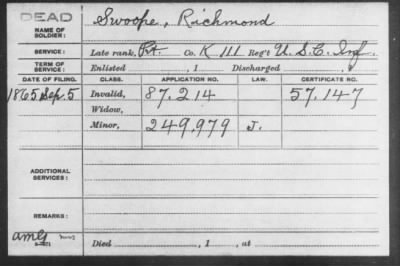 DEAD
NAME OF SOLDIER: Swoope, Richmond
SERVICE: Late rank, Pvt. Co. K 111 Reg't U.S.C. Inf.
TERM OF SERVICE: Enlisted , 1 Discharged , 1
DATE OF FILING. CLASS. APPLICATION NO. LAW. CERTIFICATE NO.
1865 Sep. 5 Invalid, 87.214 57.147
Widow,
Minor, 249,979 J.
ADDITIONAL SERVICES:
REMARKS:
Died , 1 , at